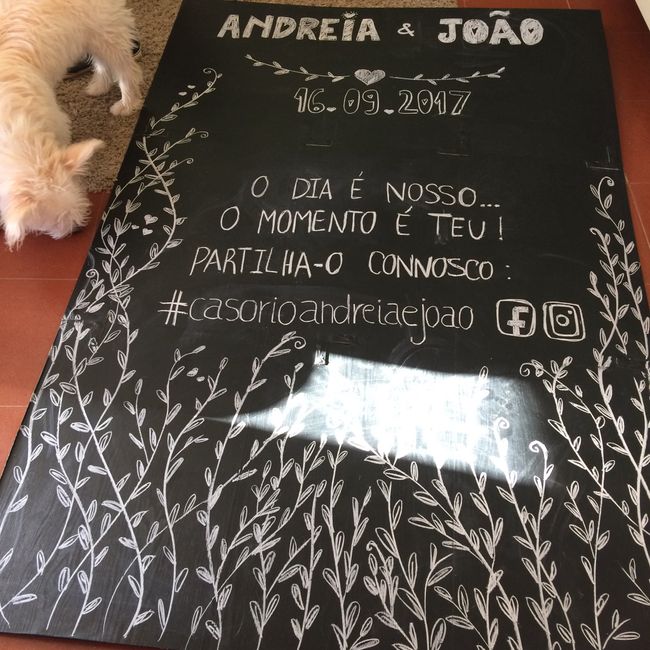 ANDREIA & JOÃO
16.09.2017
O DIA É NOSSO...
O MOMENTO É TEU!
PARTILHA-O CONNOSCO:
#casorioandreiaejoao f